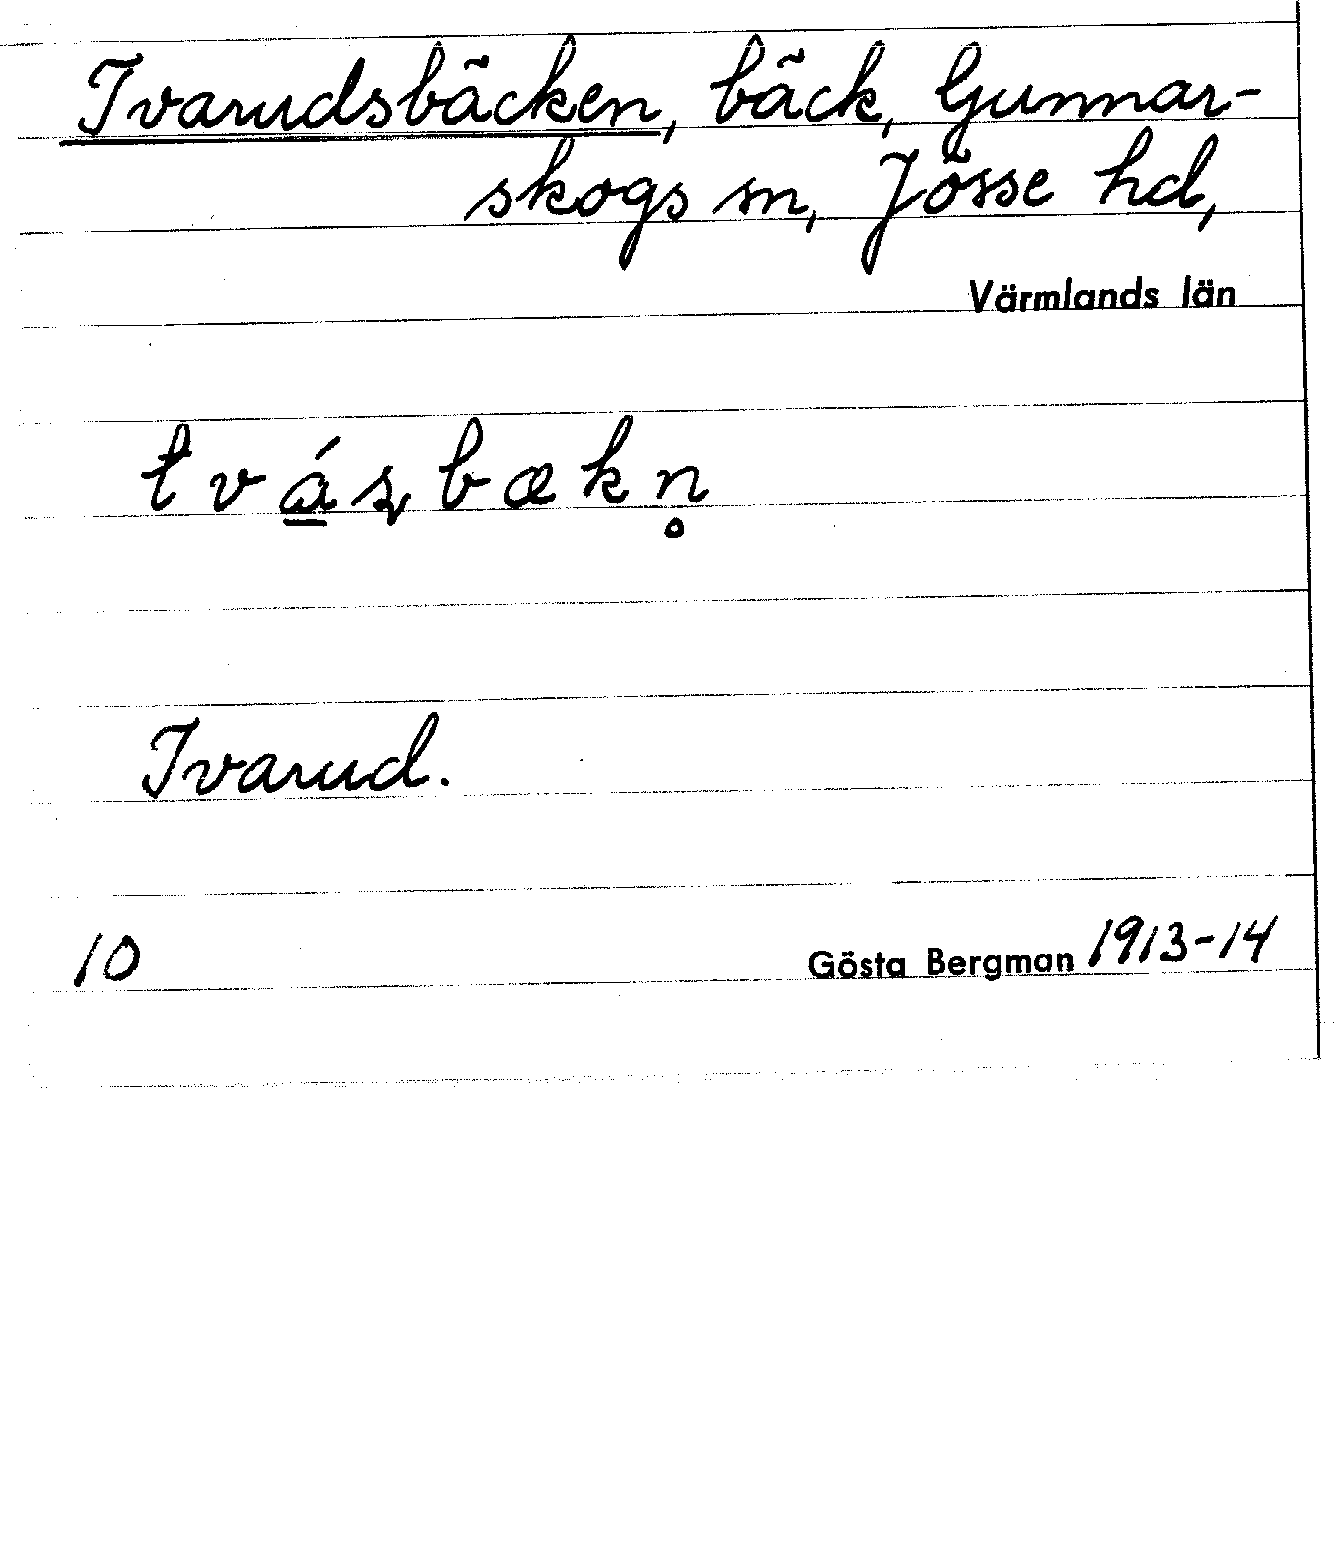 Tvarudsbäcken, bäck, Gunnar-
skogs sn, Jösse hd,
Värmlands län
tvá̱ʂbækn̥
Tvarud.
10 Gösta Bergman 1913-14